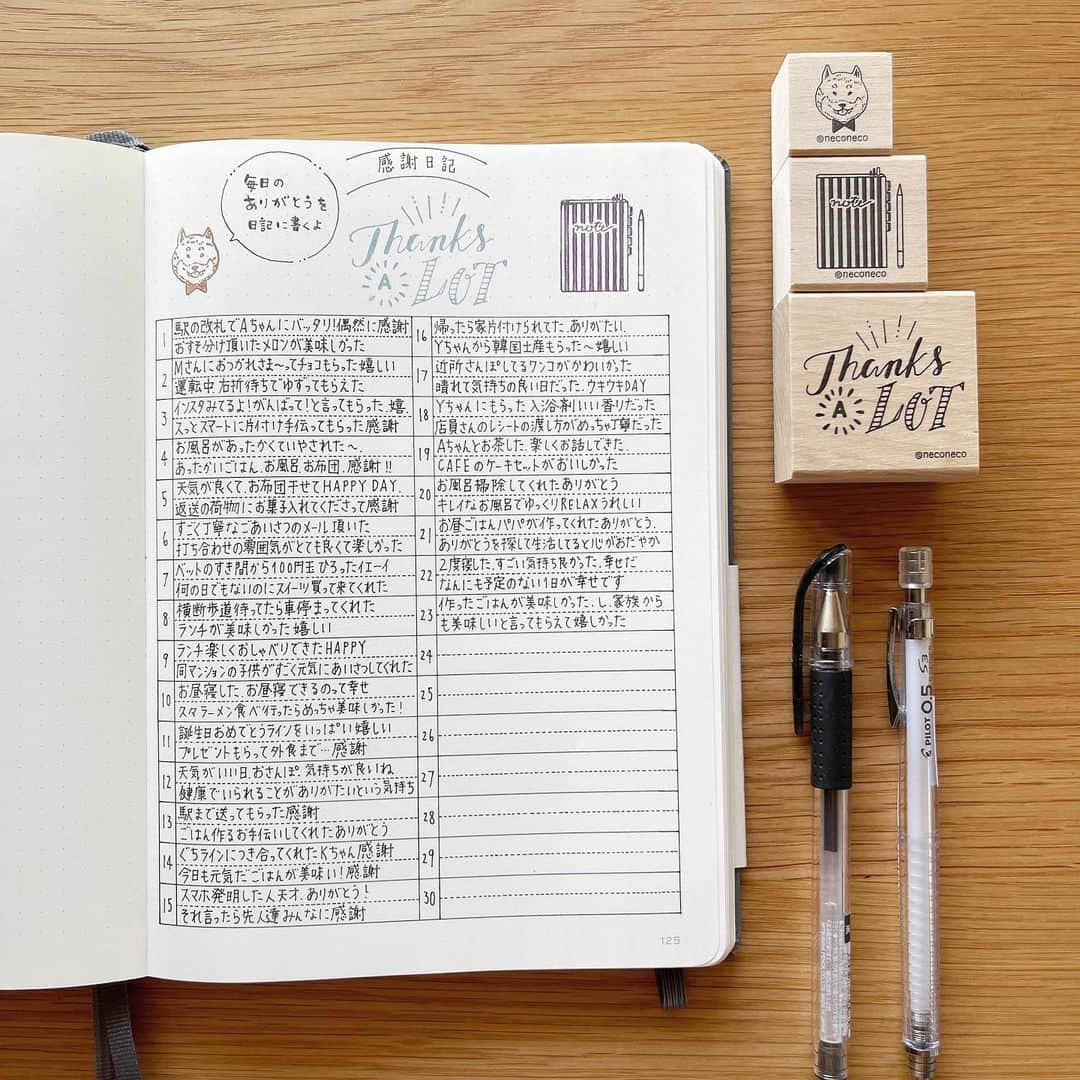 毎日の
ありがとうを
日記に書くよ
感謝日記
Thanks
A LOT
note
1 駅の改札でAちゃんにバッタリ!偶然に感謝
おすそ分け頂いたメロンが美味しかった
2 Mさんにおつかれさま〜ってチョコもらった嬉しい
運転中右折待ちでゆずってもらえた
3 インスタみてるよ!がんばって!と言ってもらった、嬉
スッとスマートに片付け手伝ってもらった感謝
4 お風呂があったかくていやされた〜
あったかいごはん、お風呂、お布団、感謝!!
5 天気が良くて、お布団干せてHAPPY DAY
返送の荷物にお菓子入れてくださって感謝
6 すごく丁寧なごあいさつのメール頂いた
打ち合わせの雰囲気がとても良くて楽しかった
7 ベットのすき間から100円玉ひろったイエーイ
何の日でもないのにスイーツ買って来てくれた
8 横断歩道待ってたら車停まってくれた
ランチが美味しかった嬉しい
9 ランチ楽しくおしゃべりできたHAPPY
同マンションの子供がすごく元気にあいさつしてくれた
10 お昼寝した、お昼寝できるのって幸せ
スタラーメン食べ行ったらめっちゃ美味しかった!
11 誕生日おめでとうラインをいっぱい嬉しい
プレゼントもらって外食まで…感謝
12 天気がいい日、おさんぽ、気持ちが良いね
健康でいられることがありがたいという気持ち
13 駅まで送ってもらった感謝
ごはん作るお手伝いしてくれたありがとう
14 ぐちラインにつき合ってくれたKちゃん感謝
今日も元気だごはんが美味い!感謝
15 スマホ発明した人天才、ありがとう!
それ言ったら先人達みんなに感謝
16 帰ったら家片付けられてた、ありがたい、
Yちゃんから韓国土産もらった〜嬉しい
17 近所さんぽしてるワンコがかわいかった
晴れて気持ちの良い日だった、ウキウキDAY
18 Yちゃんにもらった入浴剤いい香りだった
店員さんのレシートの渡し方がめっちゃ丁寧だった
19 Aちゃんとお茶した、楽しくお話しできた
CAFEのケーキセットがおいしかった
20 お風呂掃除してくれたありがとう
キレイなお風呂でゆっくりRELAXうれしい
21 お昼ごはんパパが作ってくれたありがとう、
ありがとうを探して生活してると心がおだやか
22 2度寝した、すごい気持ち良かった、幸せだ
なんにも予定のない1日が幸せです
23 作ったごはんが美味しかった、し、家族から
も美味しいと言ってもらえて嬉しかった
24
25
26
27
28
29
30
125
@neconeco
note
@neconeco
Thanks
A LOT
@neconeco
PILOT 0.5 S3